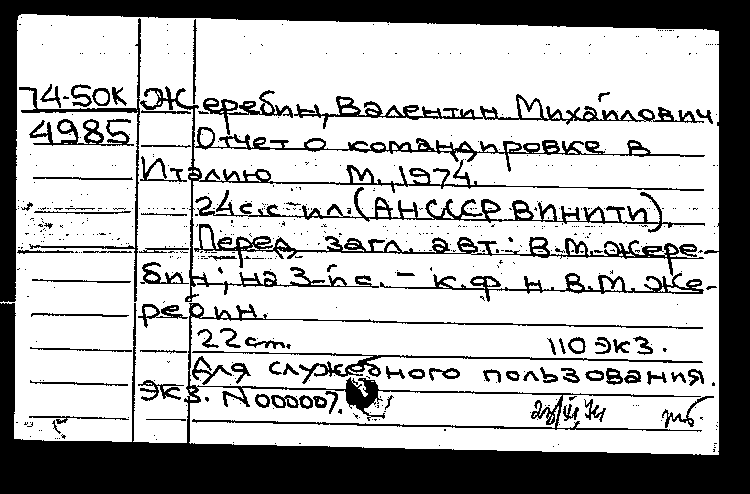 74-50К Жеребин, Валентин Михайлович.
4985 Отчет о командировке в
Италию М., 1974.
24 с. с ил. (АН СССР ВИНИТИ).
Перед загл. авт.: В.М. Жере-
бин; на 3-й с. - к.ф. н. В.М. Же-
ребин.
22 см. 110 экз.
Для служебного пользования.
Экз. N 000007.